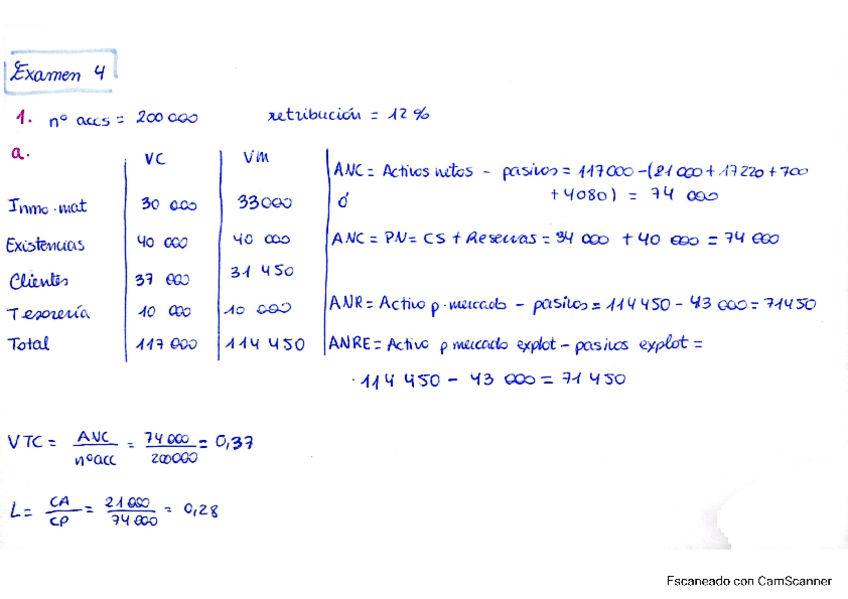 Examen 4
1. nº accs = 200 000 retribución = 12 %
a.
VC VM
Inmo. mat 30 000 33000
Existencias 40 000 40 000
Clientes 37 000 31 450
Tesorería 10 000 10 000
Total 117 000 114 450
ANC = Activos netos - pasivos = 117000 - (21 000 + 17220 + 700
+ 4080) = 74 000
ó
ANC = PN = CS + Reservas = 34 000 + 40 000 = 74 000
ANR = Activo p. mercado - pasivos = 114 450 - 43 000 = 71450
ANRE = Activo p mercado explot - pasivos explot =
· 114 450 - 43 000 = 71 450
VTC = ANC / nº acc = 74 000 / 200000 = 0,37
L = CA / CP = 21 000 / 74 000 = 0,28
Escaneado con CamScanner